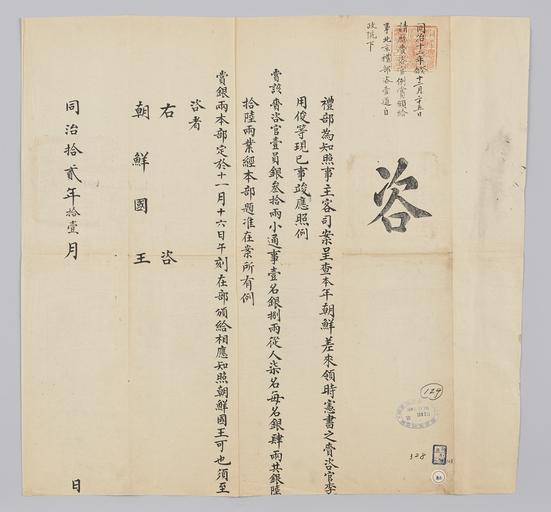 同治十二年癸十二月二十五日
請曆賫咨官例賞頒給
事北京禮部咨壹道自
政院下
咨
禮部為知照事主客司案呈查本年朝鮮差來領時憲書之賫咨官李
用俊等現已事竣應照例
賞該賫咨官壹員銀叄拾兩小通事壹名銀捌兩從人柒名每名銀肆兩共銀陸
拾陸兩業經本部題准在案所有例
賞銀兩本部定於十一月十六日午刻在部頒給相應知照朝鮮國王可也須至
咨者
右咨
朝鮮國王
同治拾貳年拾壹月日
124
328